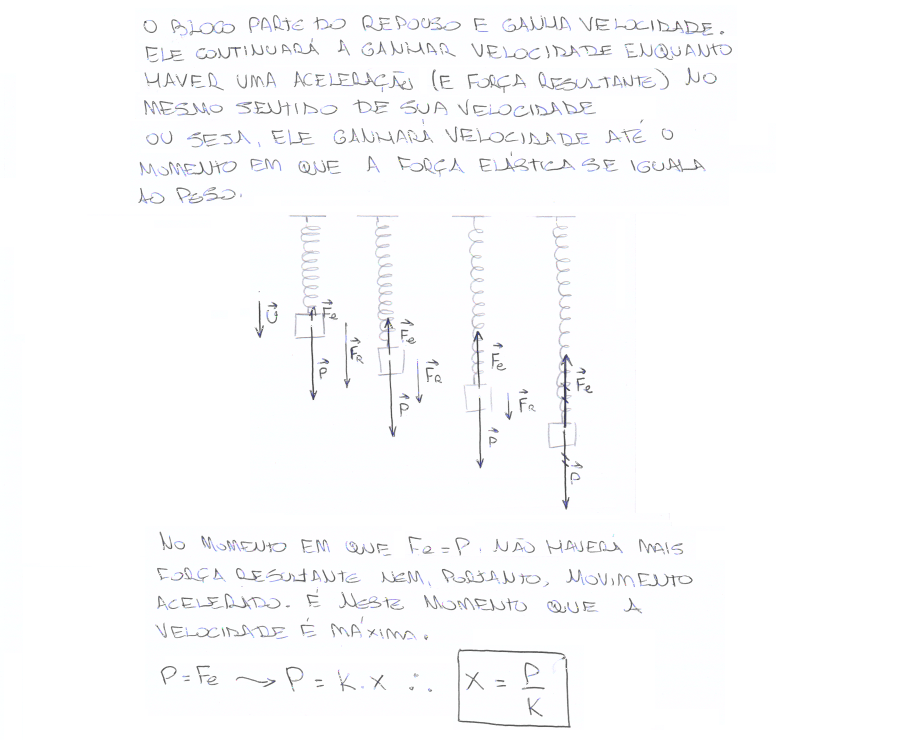 O BLOCO PARTE DO REPOUSO E GANHA VELOCIDADE.
ELE CONTINUARÁ A GANHAR VELOCIDADE ENQUANTO
HAVER UMA ACELERAÇÃO (E FORÇA RESULTANTE) NO
MESMO SENTIDO DE SUA VELOCIDADE
OU SEJA, ELE GANHARÁ VELOCIDADE ATÉ O
MOMENTO EM QUE A FORÇA ELÁSTICA SE IGUALA
AO PESO.
V Fe FR P
Fe FR P
Fe FR P
Fe P
NO MOMENTO EM QUE Fe=P, NÃO HAVERÁ MAIS
FORÇA RESULTANTE NEM, PORTANTO, MOVIMENTO
ACELERADO. É NESTE MOMENTO QUE A
VELOCIDADE É MÁXIMA.
P=Fe → P = K.X ∴ X = P/K